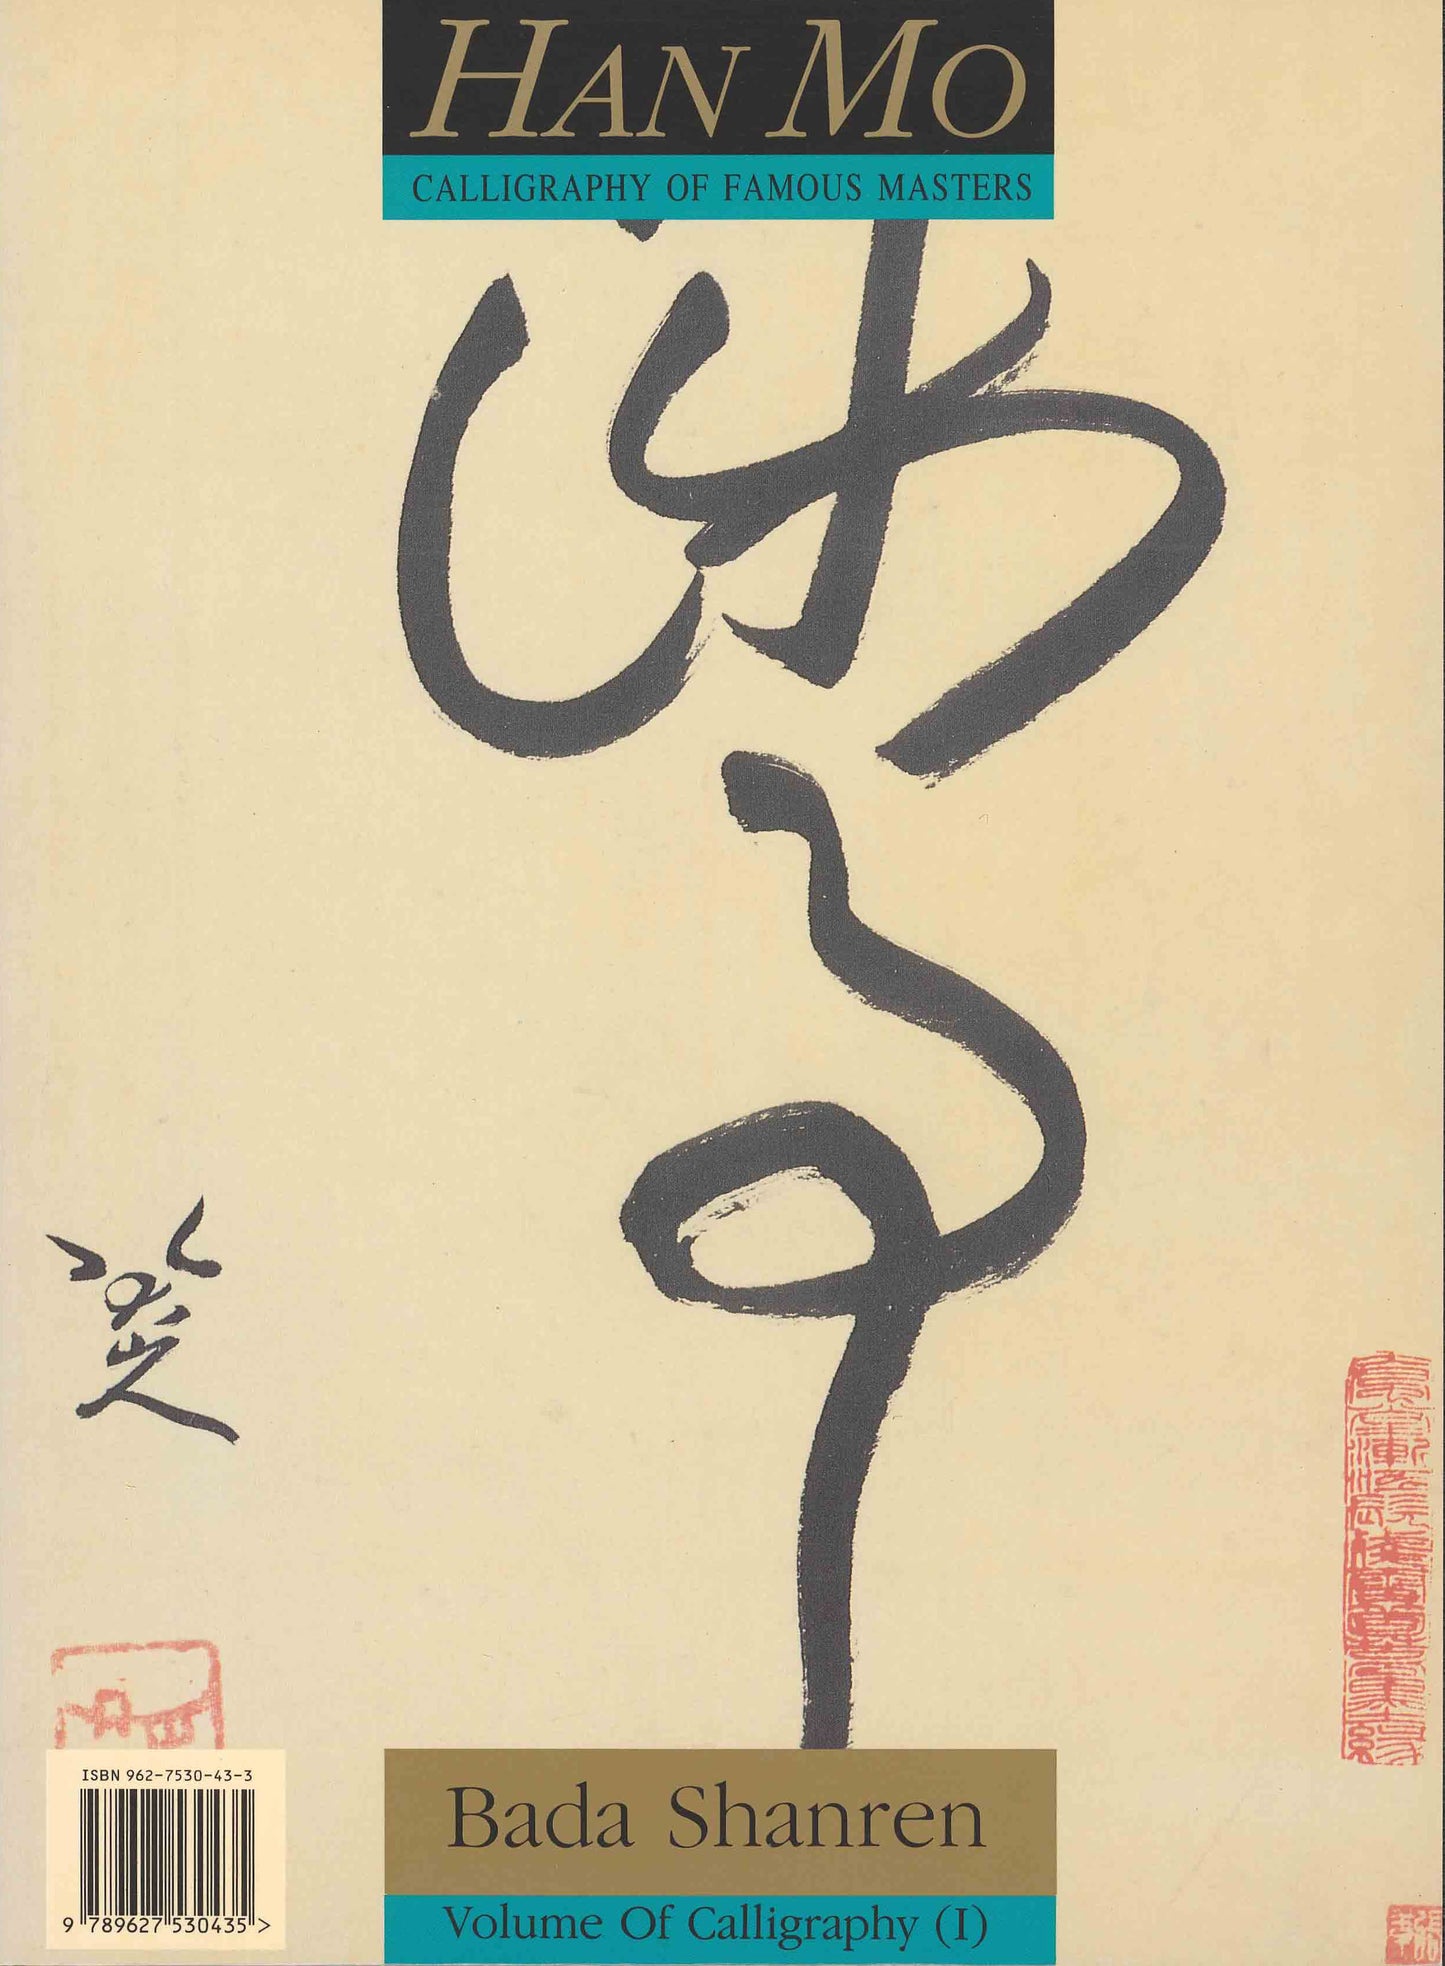 HAN MO
CALLIGRAPHY OF FAMOUS MASTERS
涉事
八大山人
ISBN 962-7530-43-3
9 789627 530435 >
Bada Shanren
Volume Of Calligraphy (I)